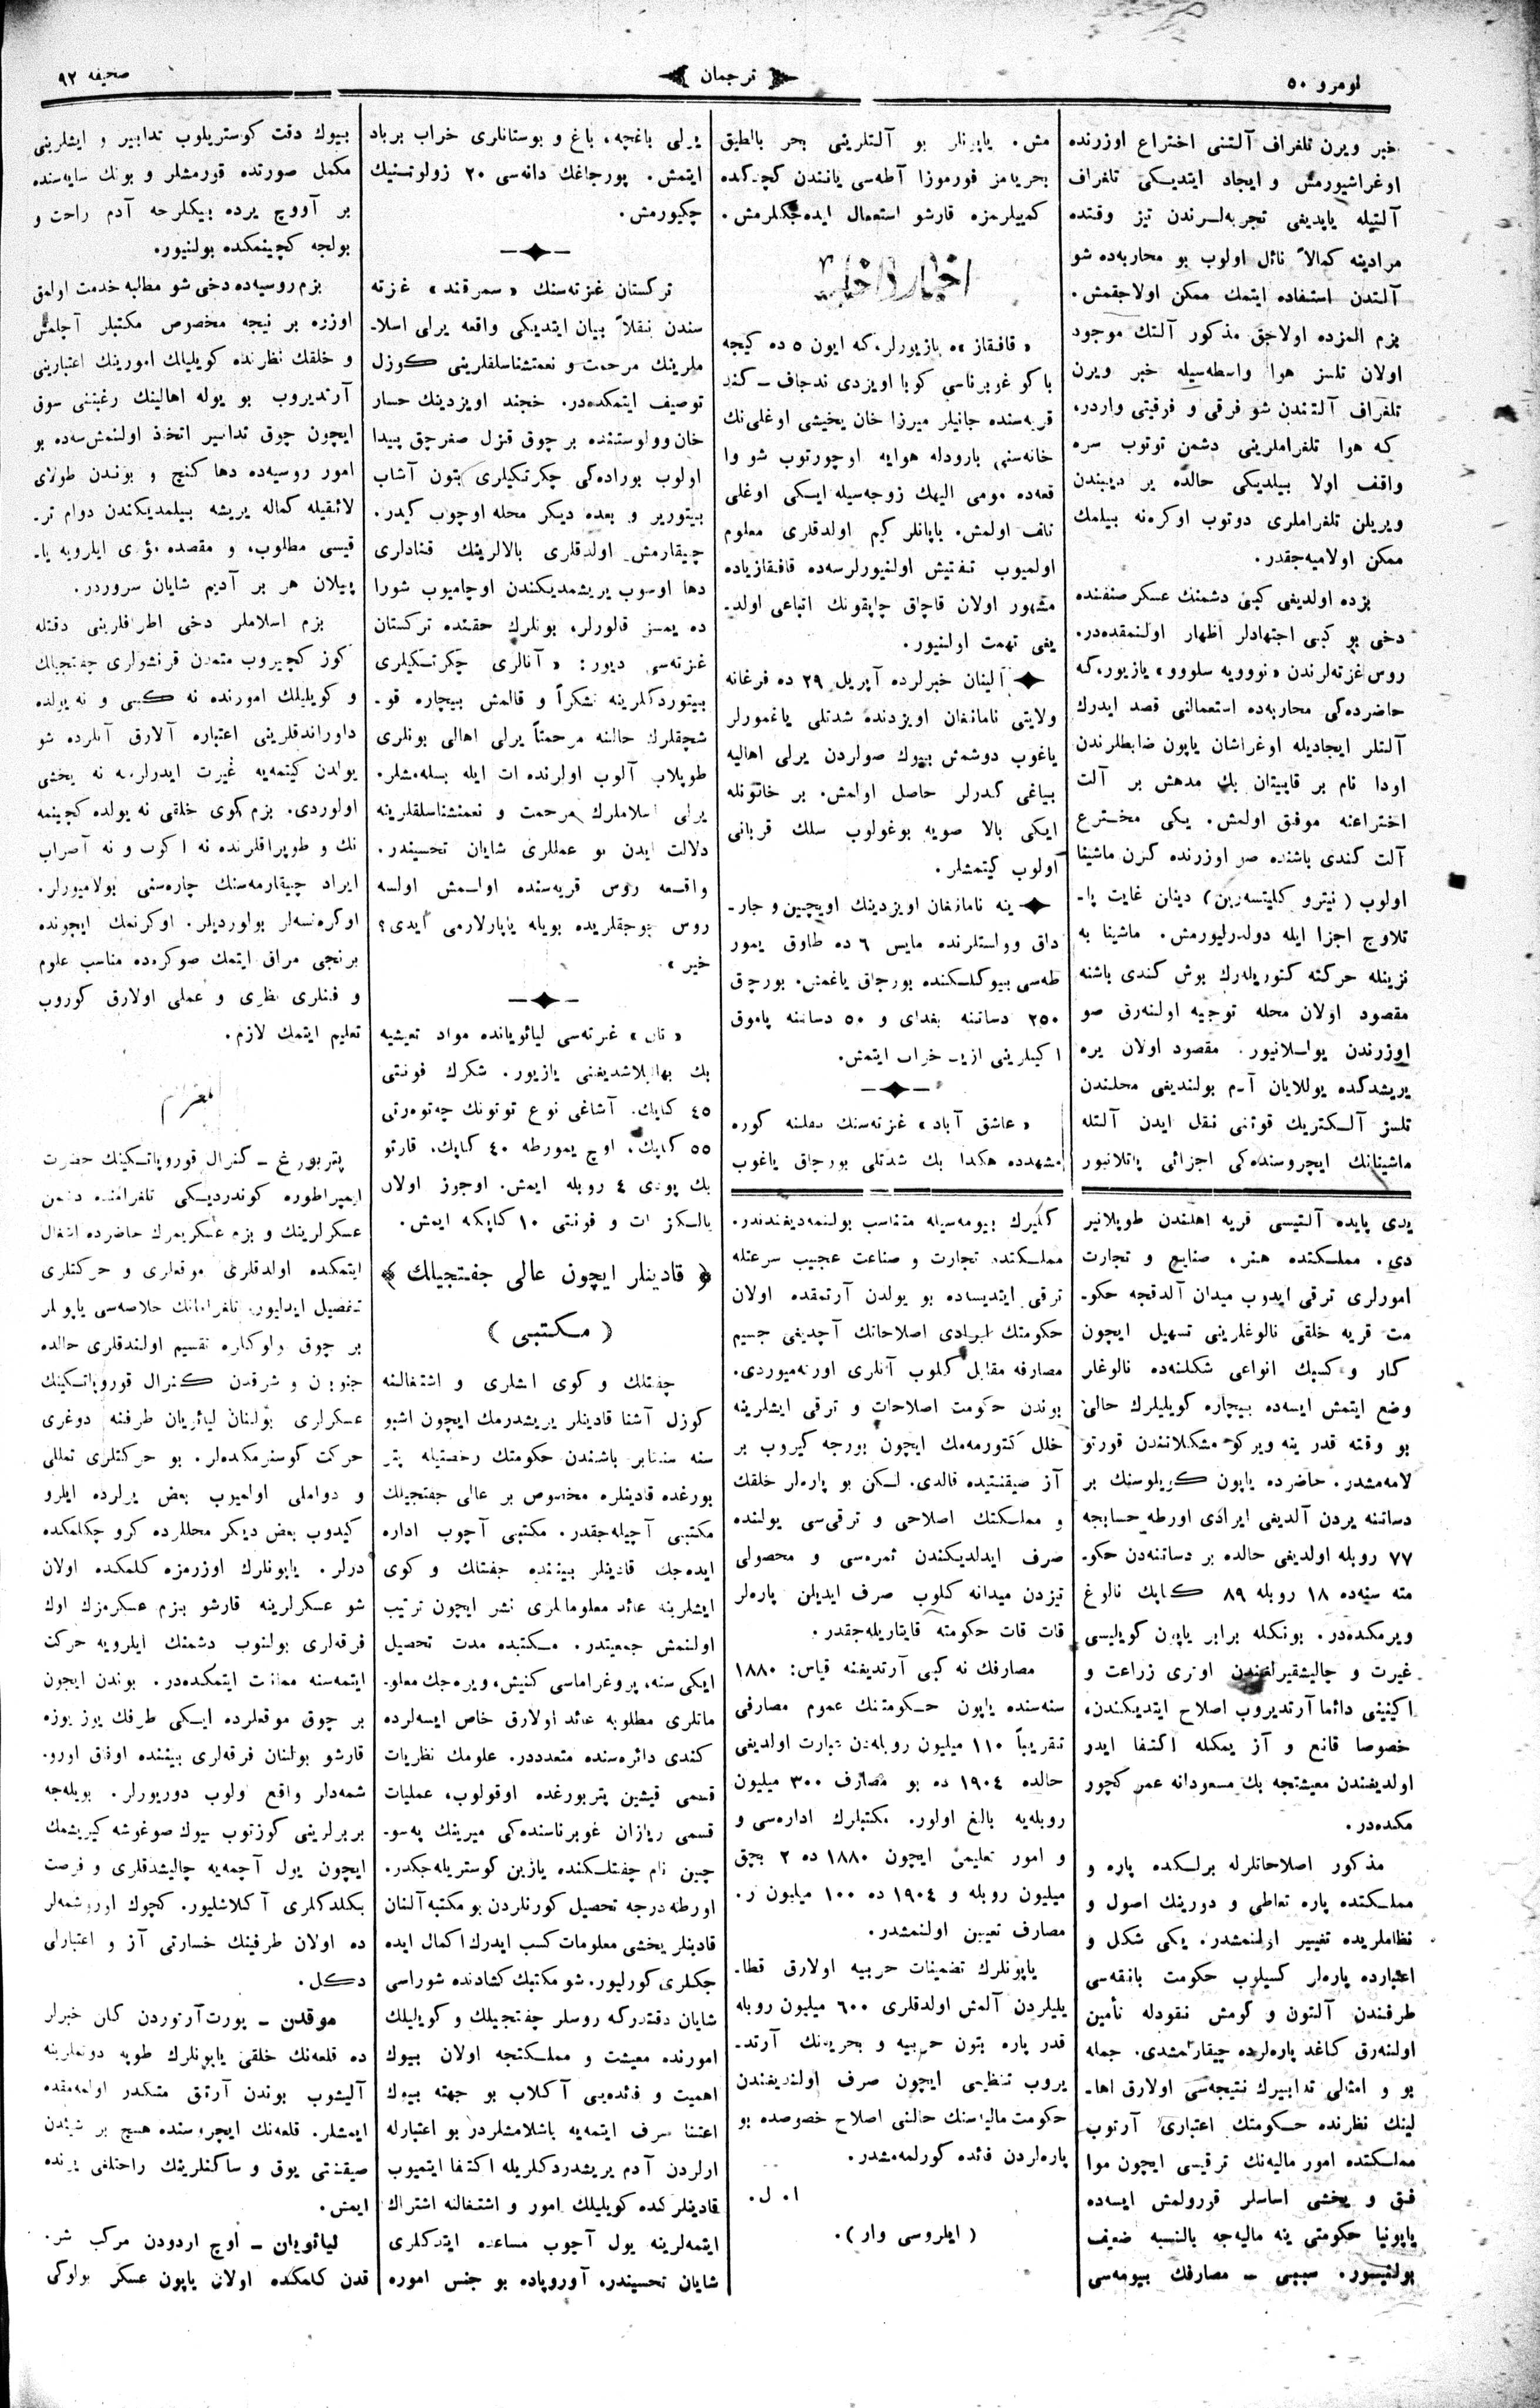 نومرو ٥٠
ترجمان
صحيفه ٩٢
خبر ويرن تلغراف آلتنى اختراع اوزرنده
اوغراشيورمش و ايجاد ايتديكى تلغراف
آلتيله ياپديغى تجربه‌لرندن تيز وقتده
مرادينه كمالاً نائل اولوب بو محاربه‌ده شو
آلتدن استفاده ايتمك ممكن اولاجقمش.
بزم المزده اولاجق مذكور آلتك موجود
اولان تلسز هوا واسطه‌سيله خبر ويرن
تلغراف آلتندن شو فرقى و فرقيتى واردر،
كه هوا تلغراملرينى دشمن توتوب سره
واقف اولا بيلديكى حالده ير ديبندن
ويريلن تلغراملرى دوتوب اوكره‌نه بيلمك
ممكن اولاميه‌جقدر.
بزده اولديغى كبى دشمنك عسكر صنفنده
دخى بو كبى اجتهادلر اظهار اولنمقده‌در.
روس غزته‌لرندن «نوويه سلووو» يازيور، كه
حاضرده‌كى محاربه‌ده استعمالنى قصد ايدرك
آلتلر ايجاديله اوغراشان ياپون ضابطلرندن
اودا نام بر قاپيتان بك مدهش بر آلت
اختراعنه موفق اولمش. يكى مخترع
آلت كندى باشنده صو اوزرنده كزن ماشينا
اولوب (نيترو كليتسه‌رين) دينان غايت پا-
تلاوج اجزا ايله دولدرليورمش. ماشينا به
نزينله حركته كتوريله‌رك بوش كندى باشنه
مقصود اولان محله توجيه اولنه‌رق صو
اوزرندن يوللانيور. مقصود اولان يره
يريشدكده يوللايان آدم بولنديغى محلندن
تلسز آلكتريك قوتنى نقل ايدن آلتله
ماشينانك ايچروسنده‌كى اجزائى پاتلانيور
مش. ياپونلر بو آلتلرينى بحر بالطيق
بحريه‌مز فورموزا آطه‌سى يانندن كچركده
كميلرمزه قارشو استعمال ايده‌جكلرمش.
اخبار داخليه
«قافقاز»ه يازيورلر، كه ايون ٥ ده كيجه
باكو غوبرناسي كوبا اويزدى ندجاف ـ كند
قريه‌سنده جانيلر ميرزا خان يخيشى اوغلى‌نك
خانه‌سنى بارودله هوايه اوچورتوب شو وا
قعه‌ده مومى اليهك زوجه‌سيله ايكى اوغلى
تلف اولمش. ياپانلر كيم اولدقلرى معلوم
اولميوب تفتيش اولنيورلرسه‌ده قافقازياده
مشهور اولان قاچاق چاپقونك اتباعى اولد-
يغى تهمت اولنيور.
آلينان خبرلرده آپريل ٢٩ ده فرغانه
ولايتى نامانغان اويزدنده شدتلى ياغمورلر
ياغوب دوشمش بيوك صولردن يرلى اهاليه
بياغى كدرلر حاصل اولمش. بر خاتونله
ايكى بالا صويه بوغولوب سلك قربانى
اولوب كيتمشلر.
ينه نامانغان اويزدينك اويچين و جار-
داق وواستلرنده مايس ٦ ده طاوق يمور
طه‌سى بيوكلكنده بورجاق ياغمش. بورچق
٢٥٠ دساتنه بغداى و ٥٠ دساتنه پاموق
اكيلرينى ازيب خراب ايتمش.
«عاشق آباد» غزته‌سنك نقلنه كوره
مشهدده هكذا بك شدتلى بورجاق ياغوب
يرلى باغچه، باغ و بوستانلرى خراب برباد
ايتمش. بورجاغك دانه‌سى ٢٠ زولوتنيك
چكيورمش.
تركستان غزته‌سنك «سمرقند» غزته
سندن نقلاً بيان ايتديكى واقعه يرلى اسلا-
ملرينك مرحمت و نعمتشناسلقلرينى كوزل
توصيف ايتمكده‌در. خجند اويزدينك حسار
خان وولوستنده بر چوق قزل صغرچق پيدا
اولوب بوراده‌كى چكرتكيلرى بتون آشاب
بيتورير و بعده ديكر محله اوچوب كيدر.
چيقارمش اولدقلرى بالالرينك قنادلرى
دها اوسوب يريشمديكندن اوچاميوب شورا
ده يمسز قالورلر، بونلرك حقنده تركستان
غزته‌سى ديور: «آنالرى چكرتكيلرى
بيتوردكلرينه تشكراً و قالمش بيچاره قو-
شچقلرك حالنه مرحمتاً يرلى اهالى بونلرى
طوپلاب آلوب اولرنده ات ايله بسله‌مشلر.
يرلى اسلاملرك مرحمت و نعمتشناسلقلرينه
دلالت ايدن بو عمللرى شايان تحسيندر.
واقعه روس قريه‌سنده اولمش اولسه
روس چوجقلريده بويله ياپارلارمى ايدى؟
خير».
غزته‌سى ليائويانده مواد تعيشيه
بك بهالاشديغنى يازيور. شكرك فونتى
٤٥ كاپك. آشاغى نوع توتونك چه‌توه‌رتى
٥٥ كاپك، اوچ يمورطه ٤٠ كاپك، قارتو
بك پودى ٤ روبله ايمش. اوجوز اولان
يالكز ات و فونتى ١٠ كاپكه ايمش.
﴿ قادينلر ايچون عالى جفتجيلك ﴾
(مكتبى)
جفتلك و كوى ايشلرى و اشتغالنه
كوزل آشنا قادينلر يريشدرمك ايچون اشبو
سنه سنتابر باشندن حكومتك رخصتيله پتر
بورغده قادينلره مخصوص بر عالى جفتجيلك
مكتبى آچيله‌جقدر. مكتبى آچوب اداره
ايده‌جك قادينلر بيننده جفتلك و كوى
ايشلرينه عائد معلوماتلرى نشر ايچون ترتيب
اولنمش جمعيتدر. مكتبده مدت تحصيل
ايكى سنه، پروغراماسى كنيش، ويره‌جك معلو-
ماتلرى مطلوبه عائد اولارق خاص ايسه‌لرده
كندى دائره‌سنده متعدددر. علومك نظريات
قسمى قيشين پتربورغده اوقولوب، عمليات
قسمى ريازان غوبرناسنده‌كى ميرينك په‌سو-
چين نام جفتلكنده يازين كوستريله‌جكدر.
اورطه درجه تحصيل كورنلردن بو مكتبه آلنان
قادينلر يخشى معلومات كسب ايدرك اكمال ايده
جكلرى كورليور. شو مكتبك كشادنده شوراسى
شايان دقتدركه روسلر جفتجيلك و كويليلك
امورنده معيشت و مملكتجه اولان بيوك
اهميت و فائده‌يى آكلاب بو جهته بيوك
اعتنا صرف ايتمه‌يه باشلامشلردر بو اعتبارله
ارلردن آدم يريشدردكلريله اكتفا ايتميوب
قادينلركده كويليلك امور و اشتغالنه اشتراك
ايتمه‌لرينه يول آچوب مساعده ايتدكلرى
شايان تحسيندر، آوروپاده بو جنس اموره
بيوك دقت كوستريلوب تدابير و ايشلرينى
مكمل صورتده قورمشلر و بونك سايه‌سنده
بر آووچ يرده بيكلرجه آدم راحت و
بولجه كچينمكده بولنيور.
بزم روسيه‌ده دخى شو مطالبه خدمت اولمق
اوزره بر نيجه مخصوص مكتبلر آچلمش
و خلقك نظرنده كويليلك امورينك اعتبارينى
آرتديروب بو يوله اهالينك رغبتنى سوق
ايچون چوق تدابير اتخاذ اولنمش‌سه‌ده بو
امور روسيه‌ده دها كنج و بوندن طولاى
لائقيله كماله يريشه بيلمديكندن دوام تر-
قيسى مطلوب، و مقصده مؤدى ايلرويه يا-
پيلان هر بر آديم شايان سروردر.
بزم اسلاملر دخى اطرافلرينى دقتله
كوز كچيروب متمدن قونشولرى جفتجيلك
و كويليلك امورنده نه كبى و نه يولده
داوراندقلرينى اعتباره آلارق آنلرده شو
يولدن كيتمه‌يه غيرت ايدرلرسه نه يخشى
اولوردى. بزم كوى خلقى نه يولده كچينمه
نك و طوپراقلرنده نه اكوب و نه آصراب
ايراد چيقارمه‌سنك چاره‌سنى بولاميورلر.
اوكره‌نسه‌لر بولورديلر. اوكرنمك ايچونده
برنجى مراق ايتمك صوكره‌ده مناسب علوم
و فنلرى نظرى و عملى اولارق كوروب
تعليم ايتمك لازم.
پتربورغ ـ گنرال قوروپاتكينك حضرت
ايمپراطوره كوندرديكى تلغرامنده دشمن
عسكرلرينك و بزم عسكريمزك حاضرده اشغال
ايتمكده اولدقلرى موقعلرى و حركتلرى
تفصيل ايديليور. تلغرامانك خلاصه‌سى ياپونلر
بر چوق بولوكلره تقسيم اولندقلرى حالده
جنوبدن و شرقدن گنرال قوروپاتكينك
عسكرلرى بولنان ليائويان طرفنه دوغرى
حركت كوسترمكده‌لر. بو حركتلرى تماللى
و دواملى اولميوب بعض يرلرده ايلرو
كيدوب بعض ديكر محللرده كرو چكلمكده
درلر. ياپونلرك اوزرمزه كلمكده اولان
شو عسكرلرينه قارشو بزم عسكرمزك اوك
فرقه‌لرى بولنوب دشمنك ايلرويه حركت
ايتمه‌سنه ممانعت ايتمكده‌در. بوندن ايچون
بر چوق موقعلرده ايكى طرفك يوز يوزه
قارشو بولنان فرقه‌لرى بيننده اوفاق اورو.
شمه‌لر واقع اولوب دوريورلر. بويله‌جه
بربرلرينى كوزتوب بيوك صوغوشه كيريشمك
ايچون يول آچمه‌يه چاليشدقلرى و فرصت
بكلدكلرى آكلاشليور. كچوك اوروشمه‌لر
ده اولان طرفينك خسارتى آز و اعتبارلى
دكل.
موقدن ـ پورت آرتوردن كلن خبرلر
ده قلعه‌نك خلقى ياپونلرك طوپه دوتملرينه
آليشوب بوندن آرتق متكدر اولمه‌مقده
ايمشلر. قلعه‌نك ايچروسنده هيچ بر شيئدن
صيقنتى يوق و ساكنلرينك راحتلغى يرنده
ايمش.
ليائويان ـ اوچ اردودن مركب شر.
قدن كلمكده اولان ياپون عسكر بولوكى
يدى پايده آلتيسى قريه اهلندن طوپلانير
دى. مملكتده هنر، صنايع و تجارت
امورلرى ترقى ايدوب ميدان آلدقجه حكو-
مت قريه خلقى نالوغلرينى تسهيل ايچون
كار و كسبك انواعى شكلنه‌ده نالوغلر
وضع ايتمش ايسه‌ده بيچاره كويليلرك حالى
بو وقته قدر ينه ويركو مشكلاتندن قورتو
لامه‌مشدر. حاضرده ياپون كويلوسنك بر
دساتنه يردن آلديغى ايرادى اورطه حسابجه
٧٧ روبله اولديغى حالده بر دساتنه‌دن حكو-
مته سنه‌ده ١٨ روبله ٨٩ كاپك نالوغ
ويرمكده‌در. بونكله برابر ياپون كويليسى
غيرت و چاليشقيرلغندن اوترى زراعت و
اكينينى دائما آرتديروب اصلاح ايتديكندن،
خصوصا قانع و آز يمكله اكتفا ايدر
اولديغندن معيشتجه بك مسعودانه عمر كچور
مكده‌در.
مذكور اصلاحاتلرله برلكده پاره و
مملكتده پاره تعاطى و دورينك اصول و
نظاملريده تغيير اولنمشدر. يكى شكل و
اعتبارده پاره‌لر كسيلوب حكومت بانقه‌سى
طرفندن آلتون و كومش نقودله تأمين
اولنه‌رق كاغد پاره‌لرده چيقارلمشدى. جمله
بو و امثالى تدابيرك نتيجه‌سى اولارق اها-
لينك نظرنده حكومتك اعتبارى آرتوب
مملكتده امور ماليه‌نك ترقيسى ايچون موا
فق و يخشى اساسلر قورولمش ايسه‌ده
ياپونيا حكومتى ينه ماليه‌جه بالنسبه ضعيف
بولنيور. سببى ـ مصارفك بيومه‌سى
كليرك بيومه‌سيله متناسب بولنمه‌ديغندندر.
مملكتده تجارت و صناعت عجيب سرعتله
ترقى ايتديسه‌ده بو يولدن آرتمقده اولان
حكومتك ايرادى اصلاحاتك آچديغى جسيم
مصارفه مقابل كلوب آنلرى اورته‌ميوردى.
بوندن حكومت اصلاحات و ترقى ايشلرينه
خلل كتورمه‌مك ايچون بورجه كيروب بر
آز صيقنتيده قالدى. لكن بو پاره‌لر خلقك
و مملكتك اصلاحى و ترقى‌سى يولنده
صرف ايدلديكندن ثمره‌سى و محصولى
تيزدن ميدانه كلوب صرف ايديلن پاره‌لر
قات قات حكومته قايتاريله‌جقدر.
مصارفك نه كبى آرتديغنه قياس: ١٨٨٠
سنه‌سنده ياپون حكومتنك عموم مصارفى
تقريباً ١١٠ ميليون روبله‌دن عبارت اولديغى
حالده ١٩٠٤ ده بو مصارف ٣٠٠ ميليون
روبله‌يه بالغ اولور. مكتبلرك اداره‌سى و
و امور تعليمى ايچون ١٨٨٠ ده ٢ بچق
ميليون روبله و ١٩٠٤ ده ١٠٠ ميليون ر.
مصارف تعيين اولنمشدر.
ياپونلرك تضمينات حربيه اولارق قطا-
يليلردن آلمش اولدقلرى ٦٠٠ ميليون روبله
قدر پاره بتون حربيه و بحريه‌نك آرتد-
يروب تنظيمى ايچون صرف اولنديغندن
حكومت ماليه‌سنك حالنى اصلاح خصوصده بو
پاره‌لردن فائده كورلمه‌مشدر.
ا. ل.
(ايلروسى وار).